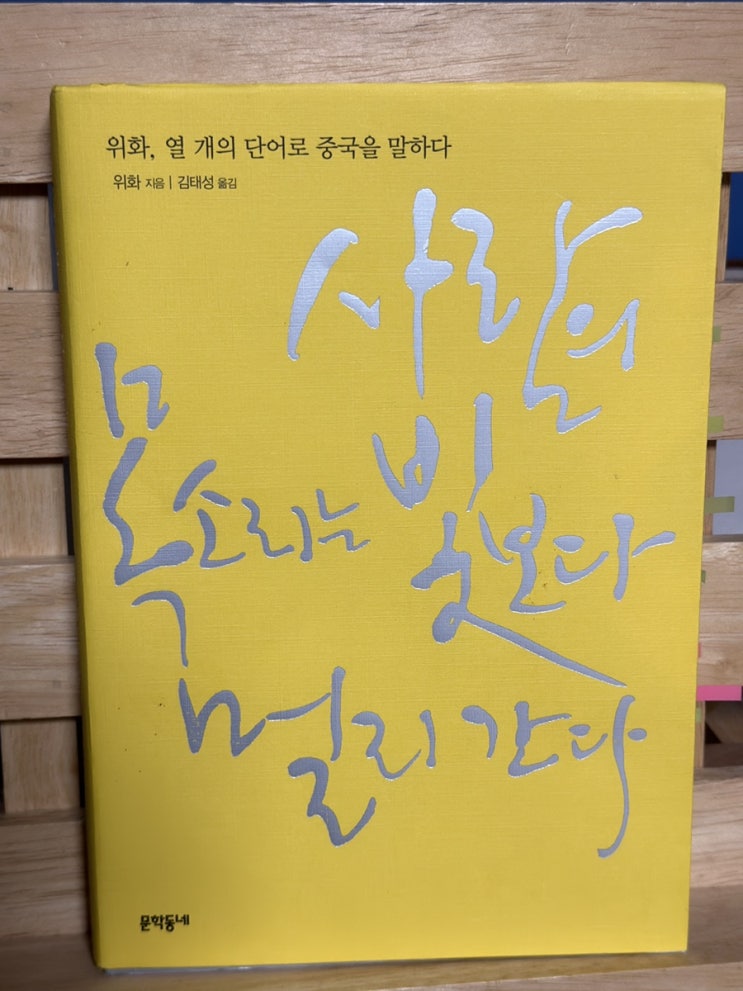 위화, 열 개의 단어로 중국을 말하다
위화 지음 | 김태성 옮김
사람의
목소리는 빛보다
멀리 간다
문학동네